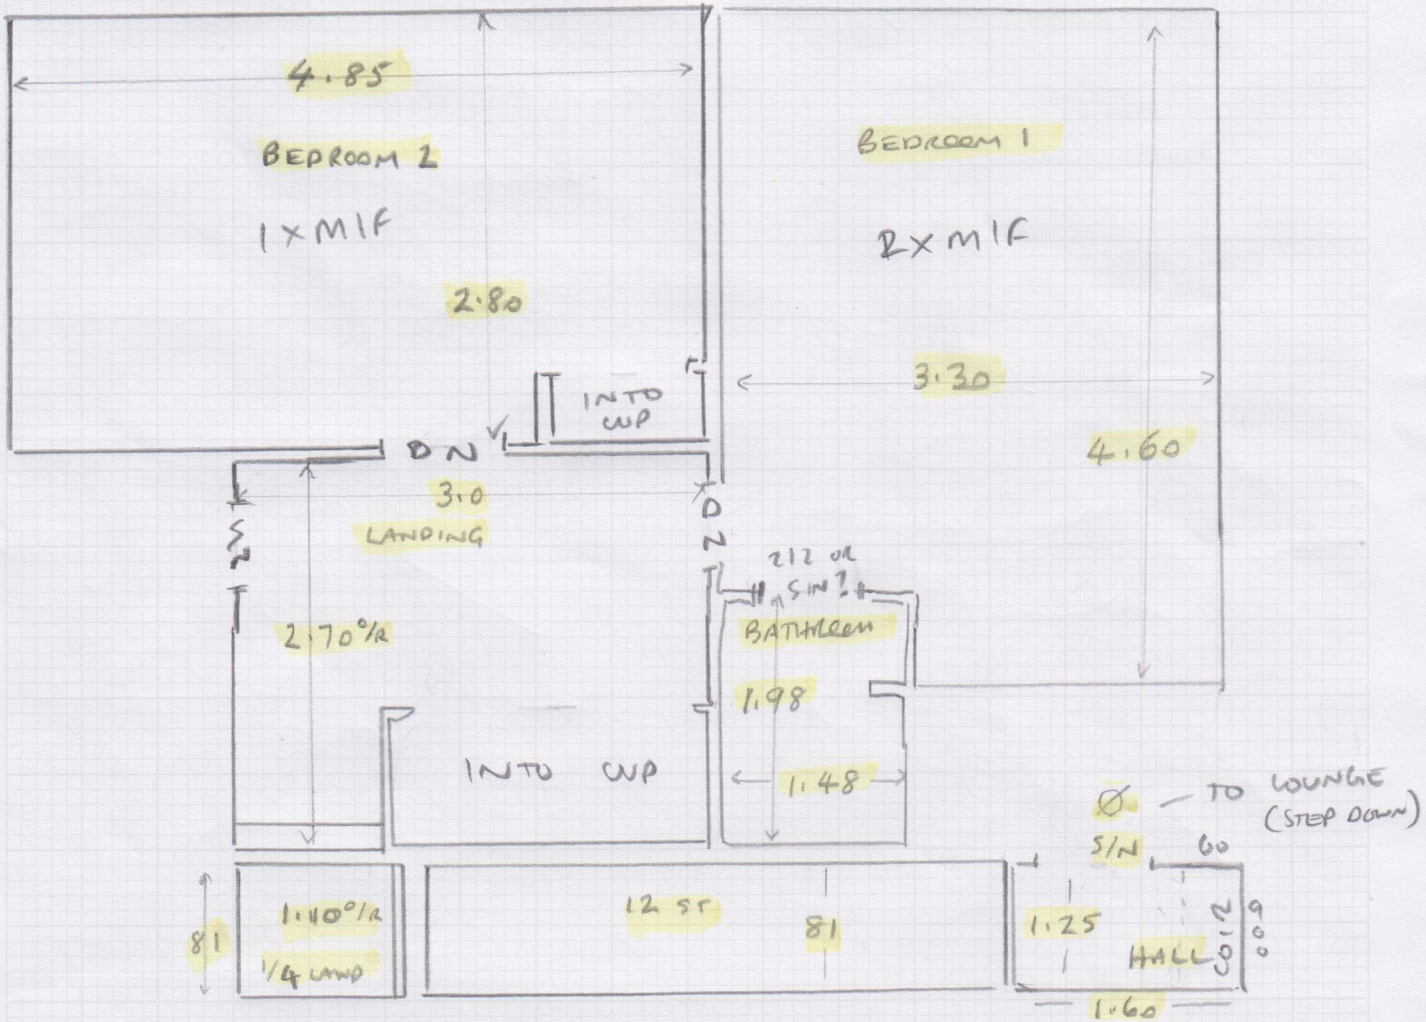 4.85
BEDROOM 2
1 X M/F
2.80
INTO
CUP
BEDROOM 1
2 X M/F
3.30
4.60
DN
3.0
LANDING
DN
2.70 O/R
INTO CUP
212 OR
S/N?
BATHROOM
1.98
1.48
Ø — TO LOUNGE
(STEP DOWN)
S/N
60
81
1.40 O/R
1/4 LAND
12 ST
81
1.25
HALL
COIR
1.60